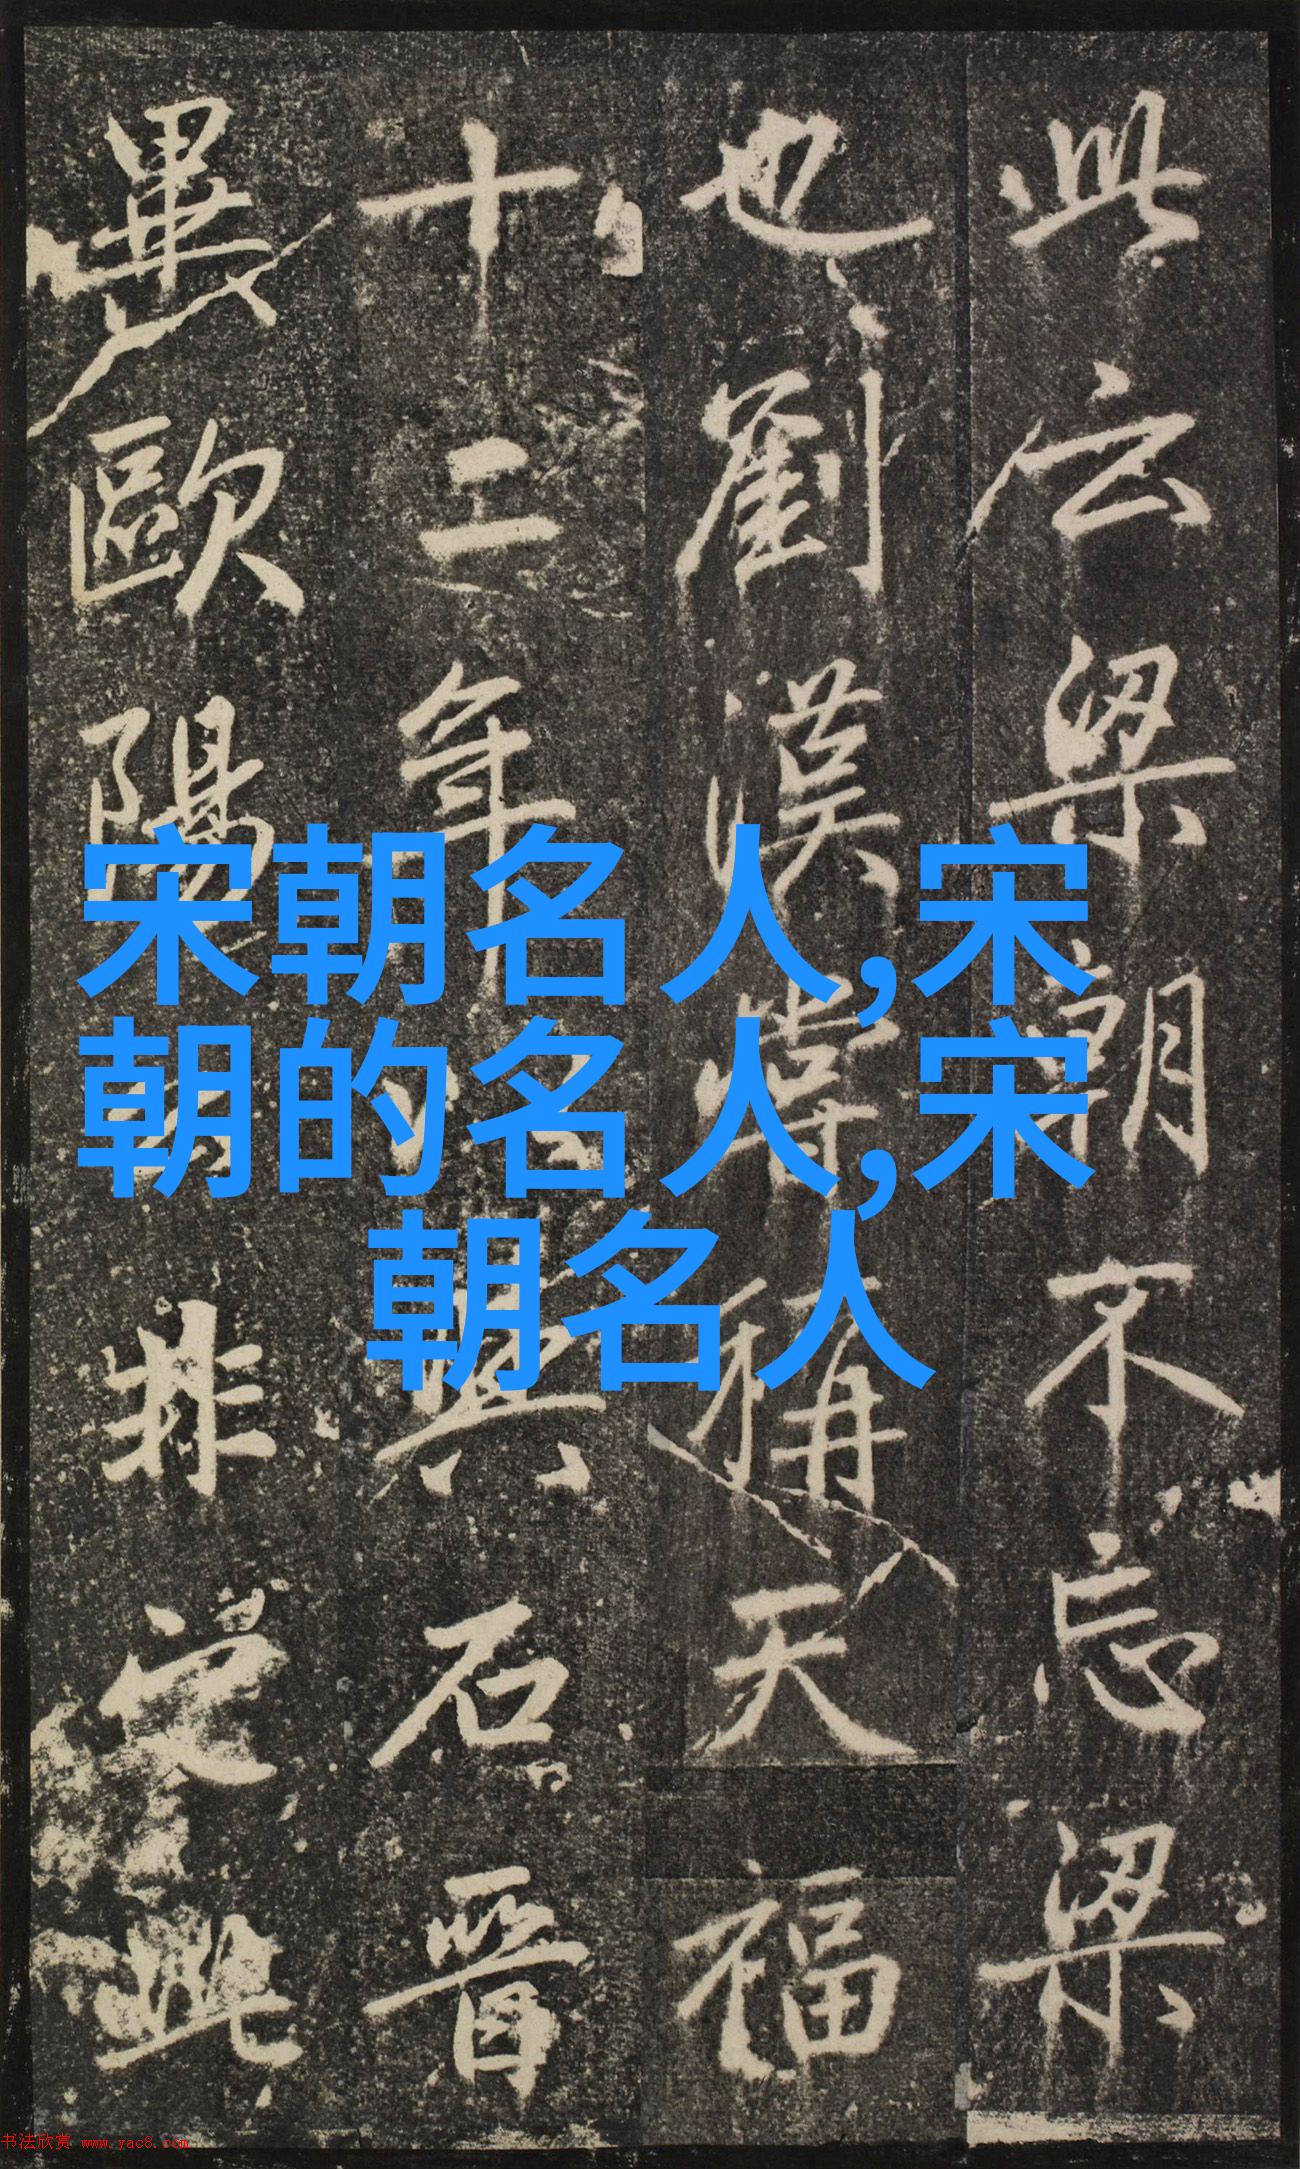 此云梁朝不忘梁
也劉漢嘗稱天福
十二年
與石晉
畢歐陽
非受此
宋朝名人,宋
朝的名人,宋
朝名人
书法欣赏 www.yac8.com